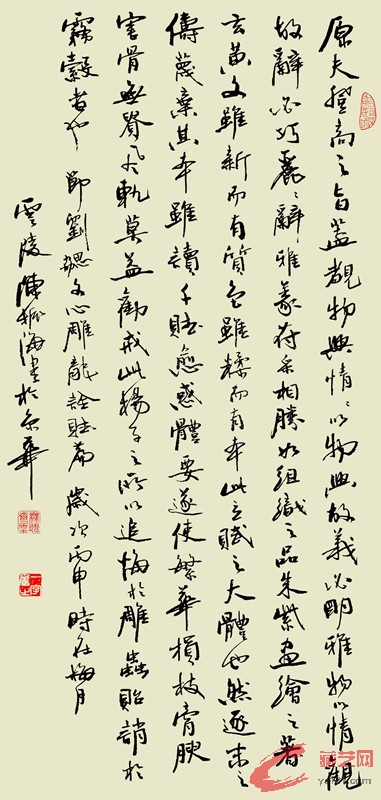 原夫登高之旨蓋覩物興情〻以物興故義必明雅物以情觀
故辭必巧麗〻辭雅義符采相勝如組織之品朱紫畫繪之著
玄黃文雖新而有質色雖糅而有本此立賦之大體也然逐末之
儔蔑棄其本雖讀千賦愈惑體要遂使繁華損枝膏腴
害骨無貴風軌莫益勸戒此揚子之所以追悔於雕蟲貽誚於
霧縠者也 節劉勰文心雕龍詮賦篇 歲次丙申時在梅月
雲陵陳海書於京華
藏艺网